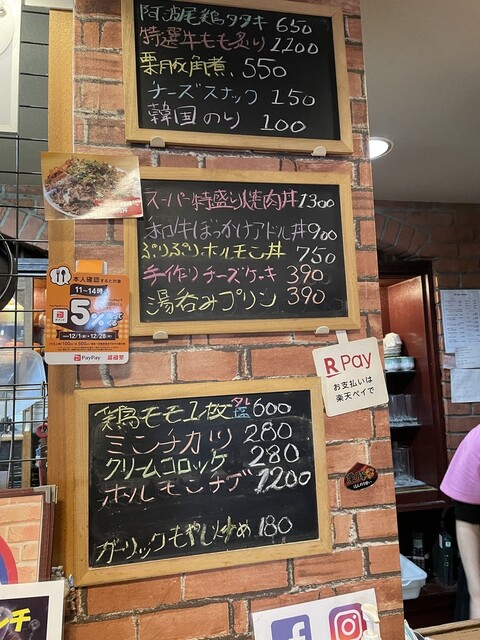 阿波尾鶏タタキ 650
特選牛もも炙り 1200
栗豚角煮、550
チーズスナック 150
韓国のり 100
スーパー特盛り焼肉丼 1300
ホロ牛ぼっかけアドル丼 900
ぷりぷりホルモン丼 750
手作りチーズケーキ 390
湯呑みプリン 390
本人確認すると対象
11〜14時
5
12/1(水)▶12/28(火)
PayPay
R Pay
お支払いは
楽天ペイで
鶏モモ1枚 タレ 塩 600
ミンチカツ 280
クリームコロッケ 280
ホルモンナゲ 1200
ガーリックもやし炒め 180
ンチ